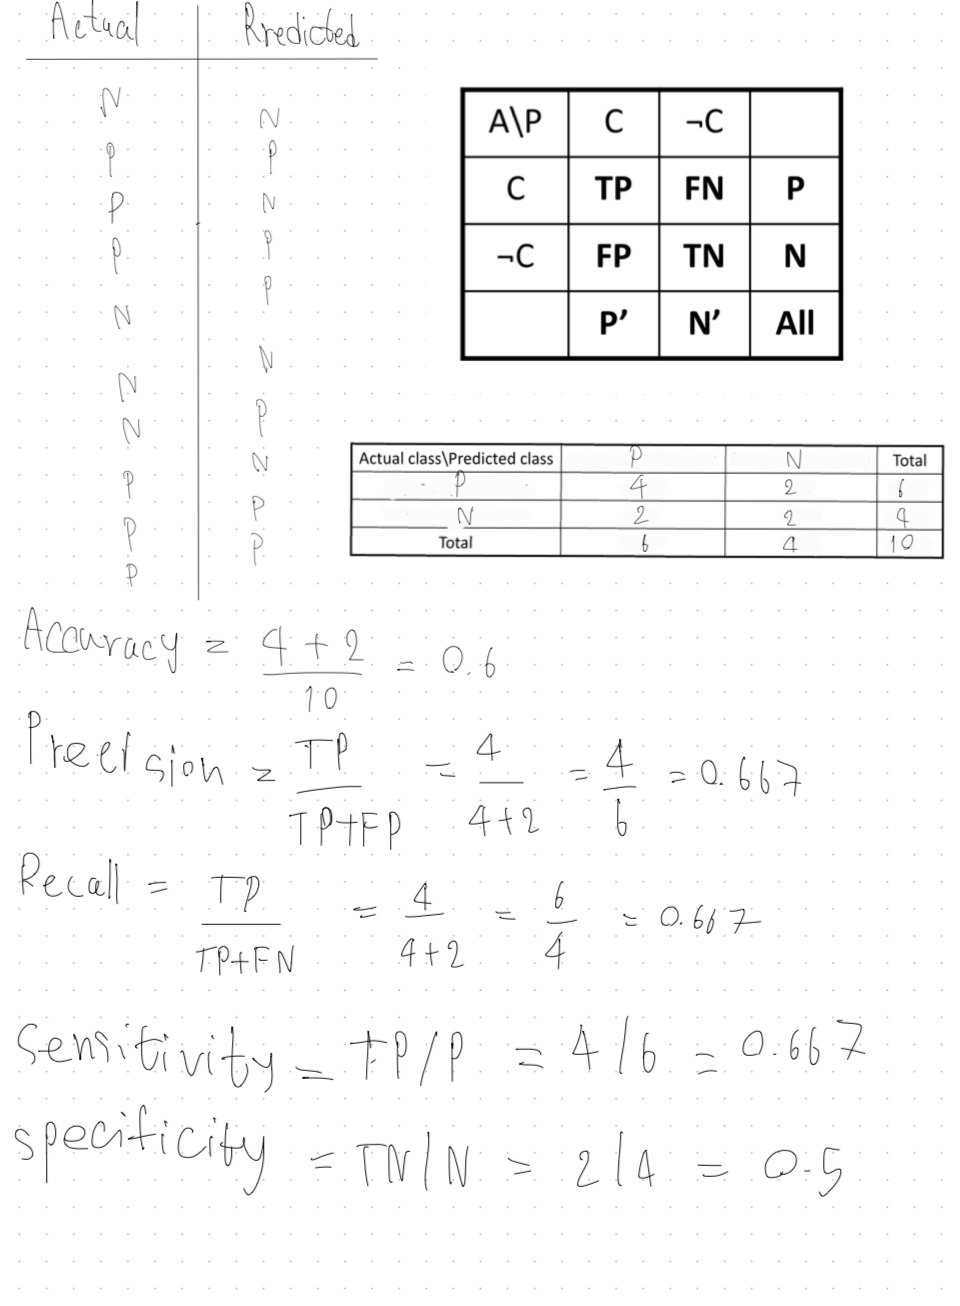 Actual Rredicted
N N
P P
P N
P P
N P
N N
N P
P N
P P
P P
A\P C ¬C
C TP FN P
¬C FP TN N
P’ N’ All
Actual class\Predicted class P N Total
P 4 2 6
N 2 2 4
Total 6 4 10
Accuracy = 4 + 2 / 10 = 0.6
Precision = TP / TP+FP = 4 / 4+2 = 4 / 6 = 0.667
Recall = TP / TP+FN = 4 / 4+2 = 6 / 4 = 0.667
Sensitivity = TP/P = 4/6 = 0.667
specificity = TN/N = 2/4 = 0.5